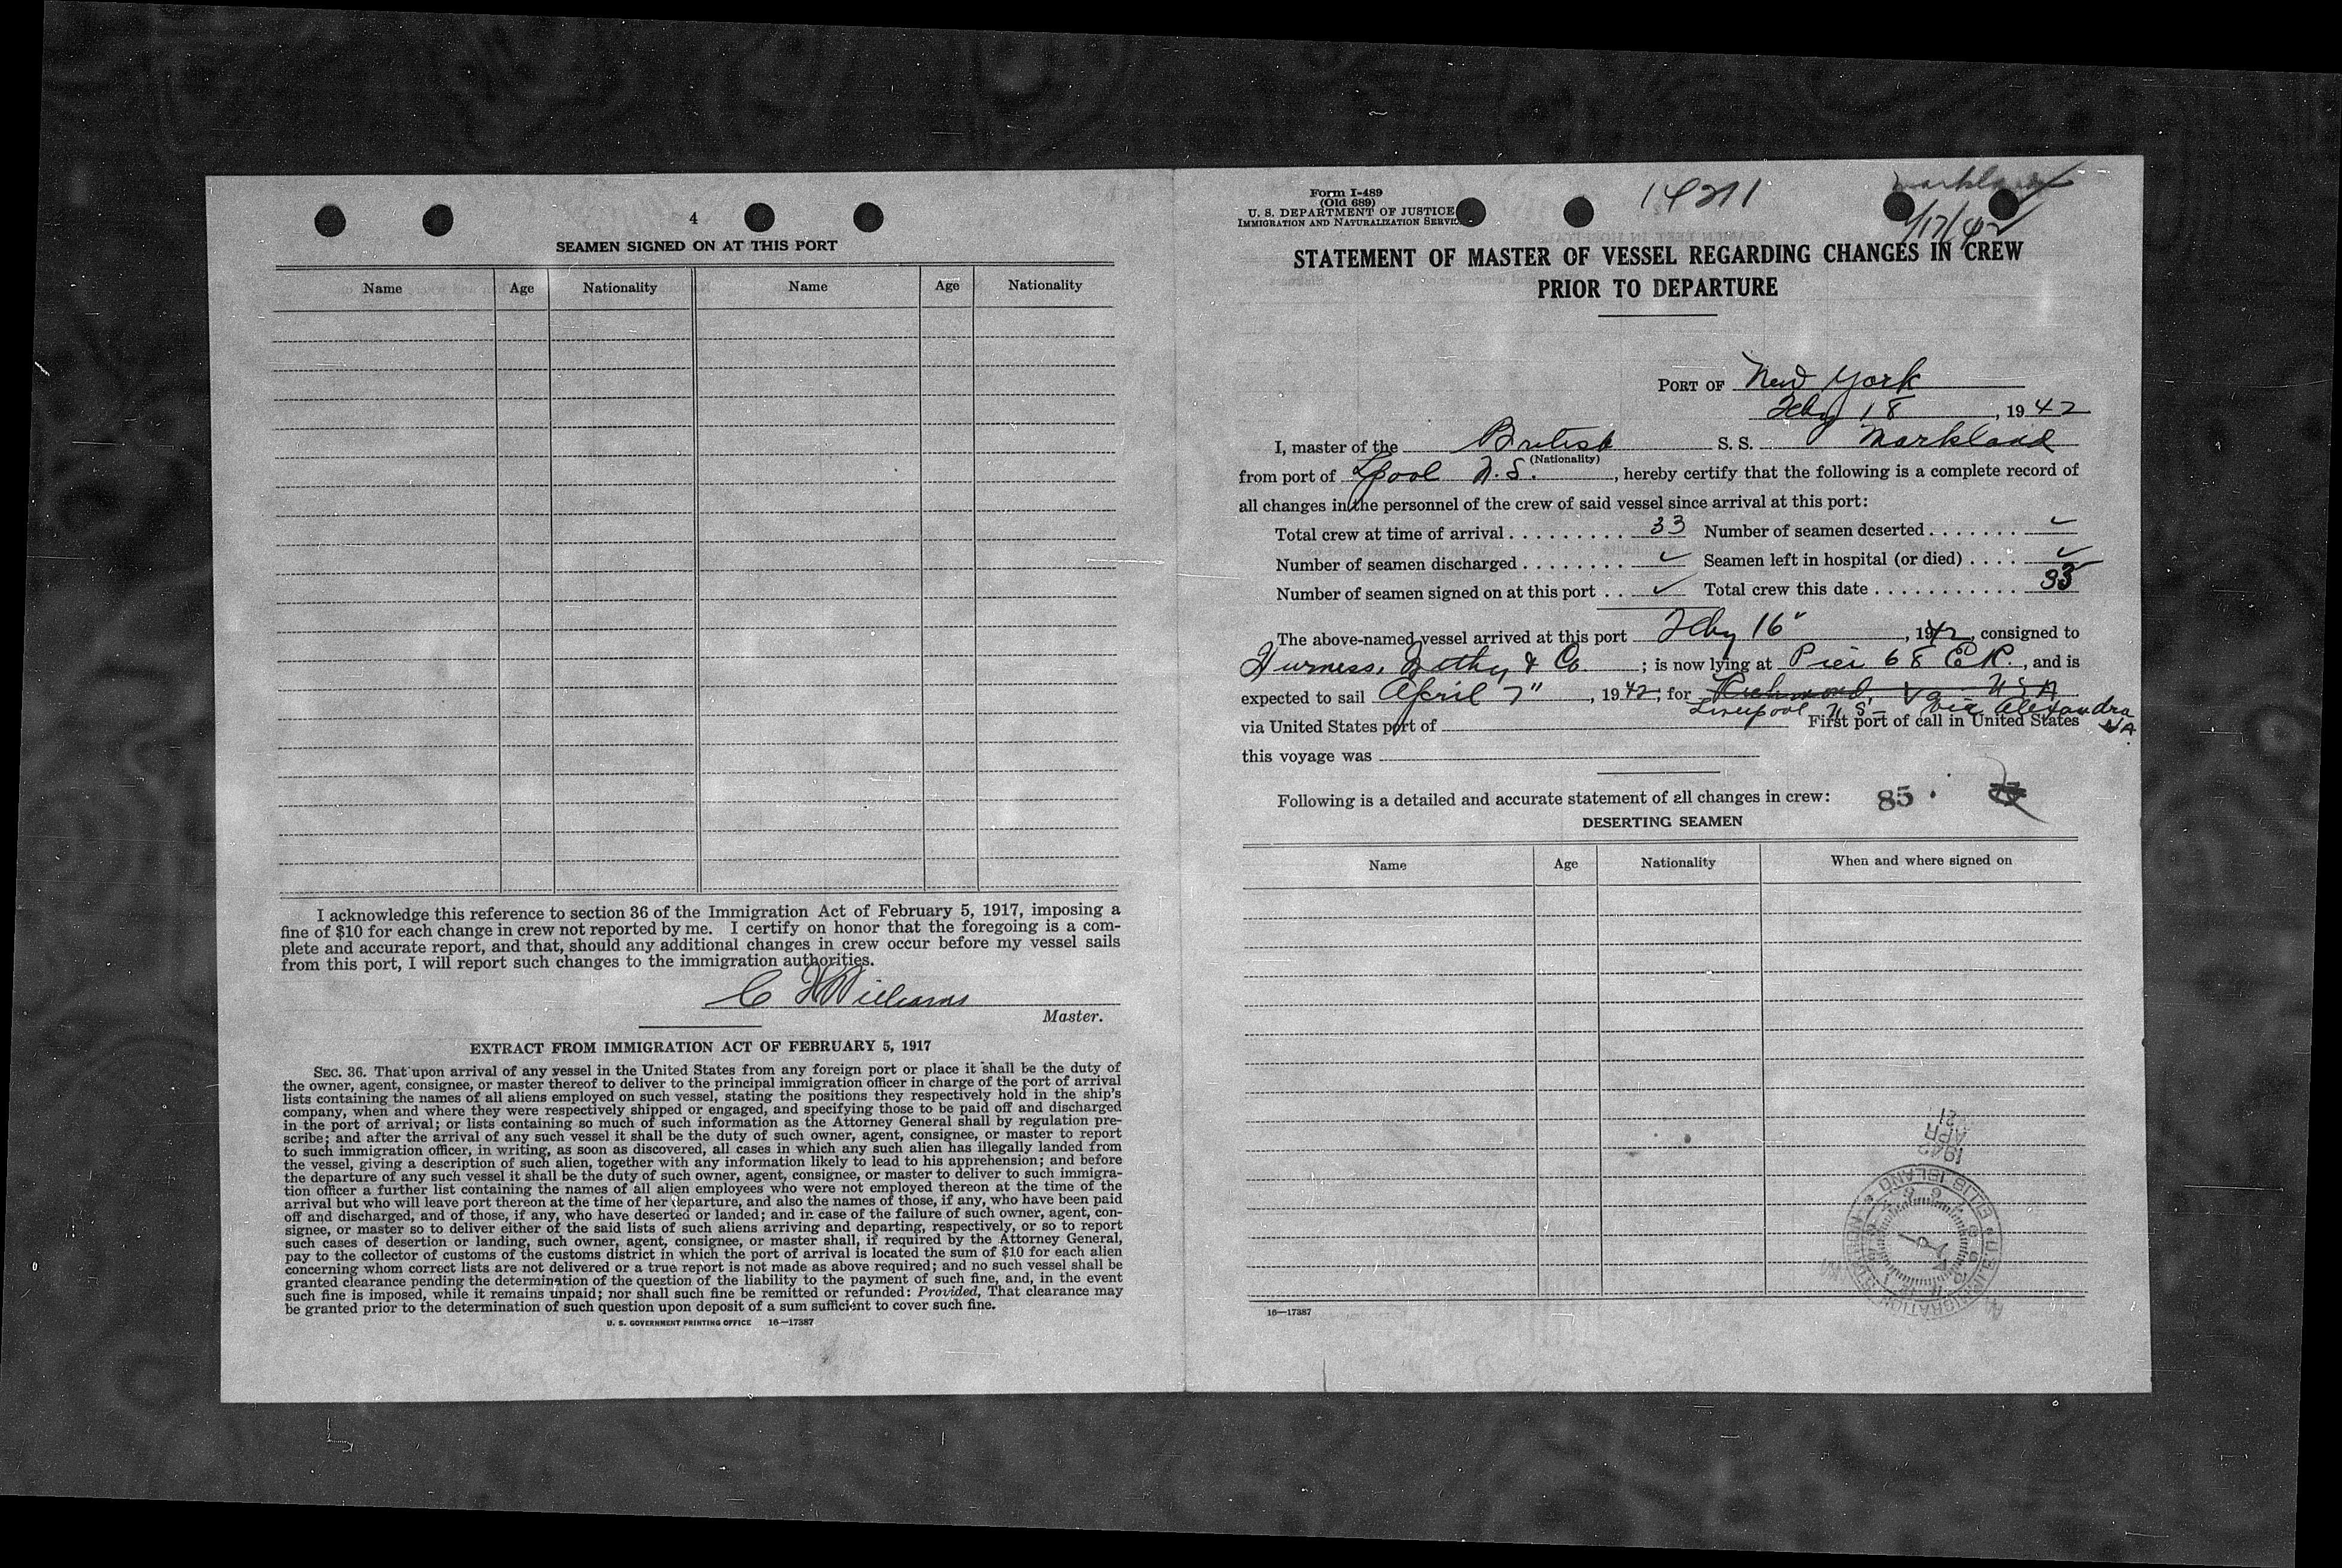 4
SEAMEN SIGNED ON AT THIS PORT
Name Age Nationality Name Age Nationality
I acknowledge this reference to section 36 of the Immigration Act of February 5, 1917, imposing a
fine of $10 for each change in crew not reported by me. I certify on honor that the foregoing is a com-
plete and accurate report, and that, should any additional changes in crew occur before my vessel sails
from this port, I will report such changes to the immigration authorities.
C H Williams
Master.
EXTRACT FROM IMMIGRATION ACT OF FEBRUARY 5, 1917
SEC. 36. That upon arrival of any vessel in the United States from any foreign port or place it shall be the duty of
the owner, agent, consignee, or master thereof to deliver to the principal immigration officer in charge of the port of arrival
lists containing the names of all aliens employed on such vessel, stating the positions they respectively hold in the ship's
company, when and where they were respectively shipped or engaged, and specifying those to be paid off and discharged
in the port of arrival; or lists containing so much of such information as the Attorney General shall by regulation pre-
scribe; and after the arrival of any such vessel it shall be the duty of such owner, agent, consignee, or master to report
to such immigration officer, in writing, as soon as discovered, all cases in which any such alien has illegally landed from
the vessel, giving a description of such alien, together with any information likely to lead to his apprehension; and before
the departure of any such vessel it shall be the duty of such owner, agent, consignee, or master to deliver to such immigra-
tion officer a further list containing the names of all alien employees who were not employed thereon at the time of the
arrival but who will leave port thereon at the time of her departure, and also the names of those, if any, who have been paid
off and discharged, and of those, if any, who have deserted or landed; and in case of the failure of such owner, agent, con-
signee, or master so to deliver either of the said lists of such aliens arriving and departing, respectively, or so to report
such cases of desertion or landing, such owner, agent, consignee, or master shall, if required by the Attorney General,
pay to the collector of customs of the customs district in which the port of arrival is located the sum of $10 for each alien
concerning whom correct lists are not delivered or a true report is not made as above required; and no such vessel shall be
granted clearance pending the determination of the question of the liability to the payment of such fine, and, in the event
such fine is imposed, while it remains unpaid; nor shall such fine be remitted or refunded: Provided, That clearance may
be granted prior to the determination of such question upon deposit of a sum sufficient to cover such fine.
U. S. GOVERNMENT PRINTING OFFICE 16—17387
Form I-489
(Old 689)
U. S. DEPARTMENT OF JUSTICE
IMMIGRATION AND NATURALIZATION SERVICE
14211
Markland
4/17/42
STATEMENT OF MASTER OF VESSEL REGARDING CHANGES IN CREW
PRIOR TO DEPARTURE
PORT OF New York
Feby 18, 1942
I, master of the British S. S. Markland
(Nationality)
from port of Lpool N.S., hereby certify that the following is a complete record of
all changes in the personnel of the crew of said vessel since arrival at this port:
Total crew at time of arrival 33 Number of seamen deserted ✓
Number of seamen discharged ✓ Seamen left in hospital (or died) ✓
Number of seamen signed on at this port ✓ Total crew this date 33
The above-named vessel arrived at this port Feby 16", 1942, consigned to
Furness, Withy & Co.; is now lying at Pier 68 E.R., and is
expected to sail April 7", 1942; for Richmond, Va USA
Liverpool N.S. via Alexandra VA.
via United States port of First port of call in United States
this voyage was
Following is a detailed and accurate statement of all changes in crew: 85
DESERTING SEAMEN
Name Age Nationality When and where signed on
1942
APR
21
ELLIS ISLAND
16—17387